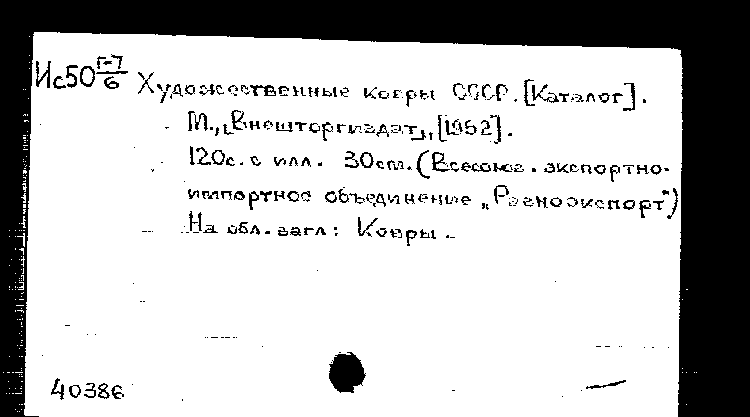 Ис50 Г-7/6 Художественные ковры СССР. [Каталог].
М., „Внешторгиздат", [1952].
120с. с илл. 30cm. (Всесоюз. экспортно-
импортное объединение „Разноэкспорт")
На обл. загл: Ковры.
40386